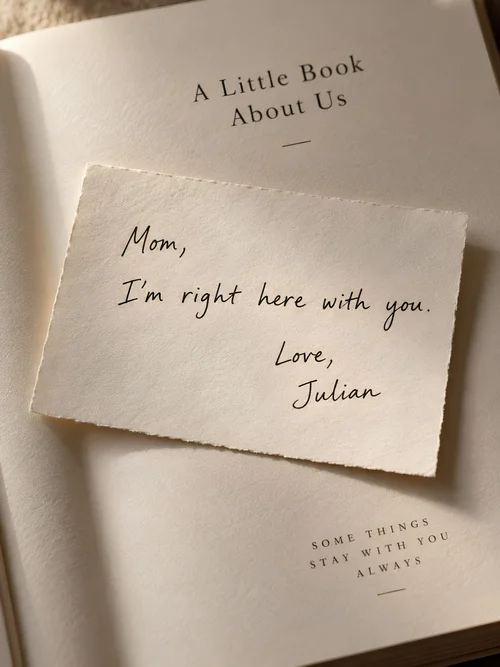 A Little Book
About Us
Mom,
I'm right here with you.
Love,
Julian
SOME THINGS
STAY WITH YOU
ALWAYS